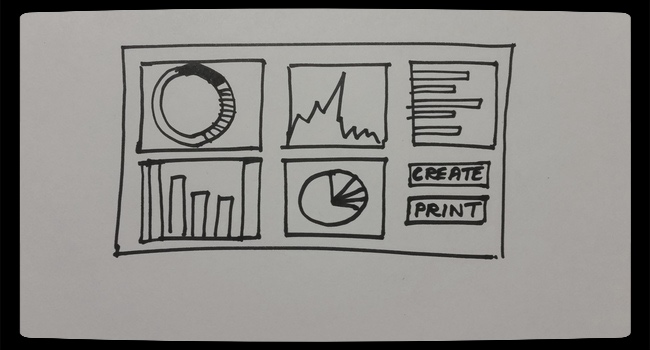 CREATE
PRINT